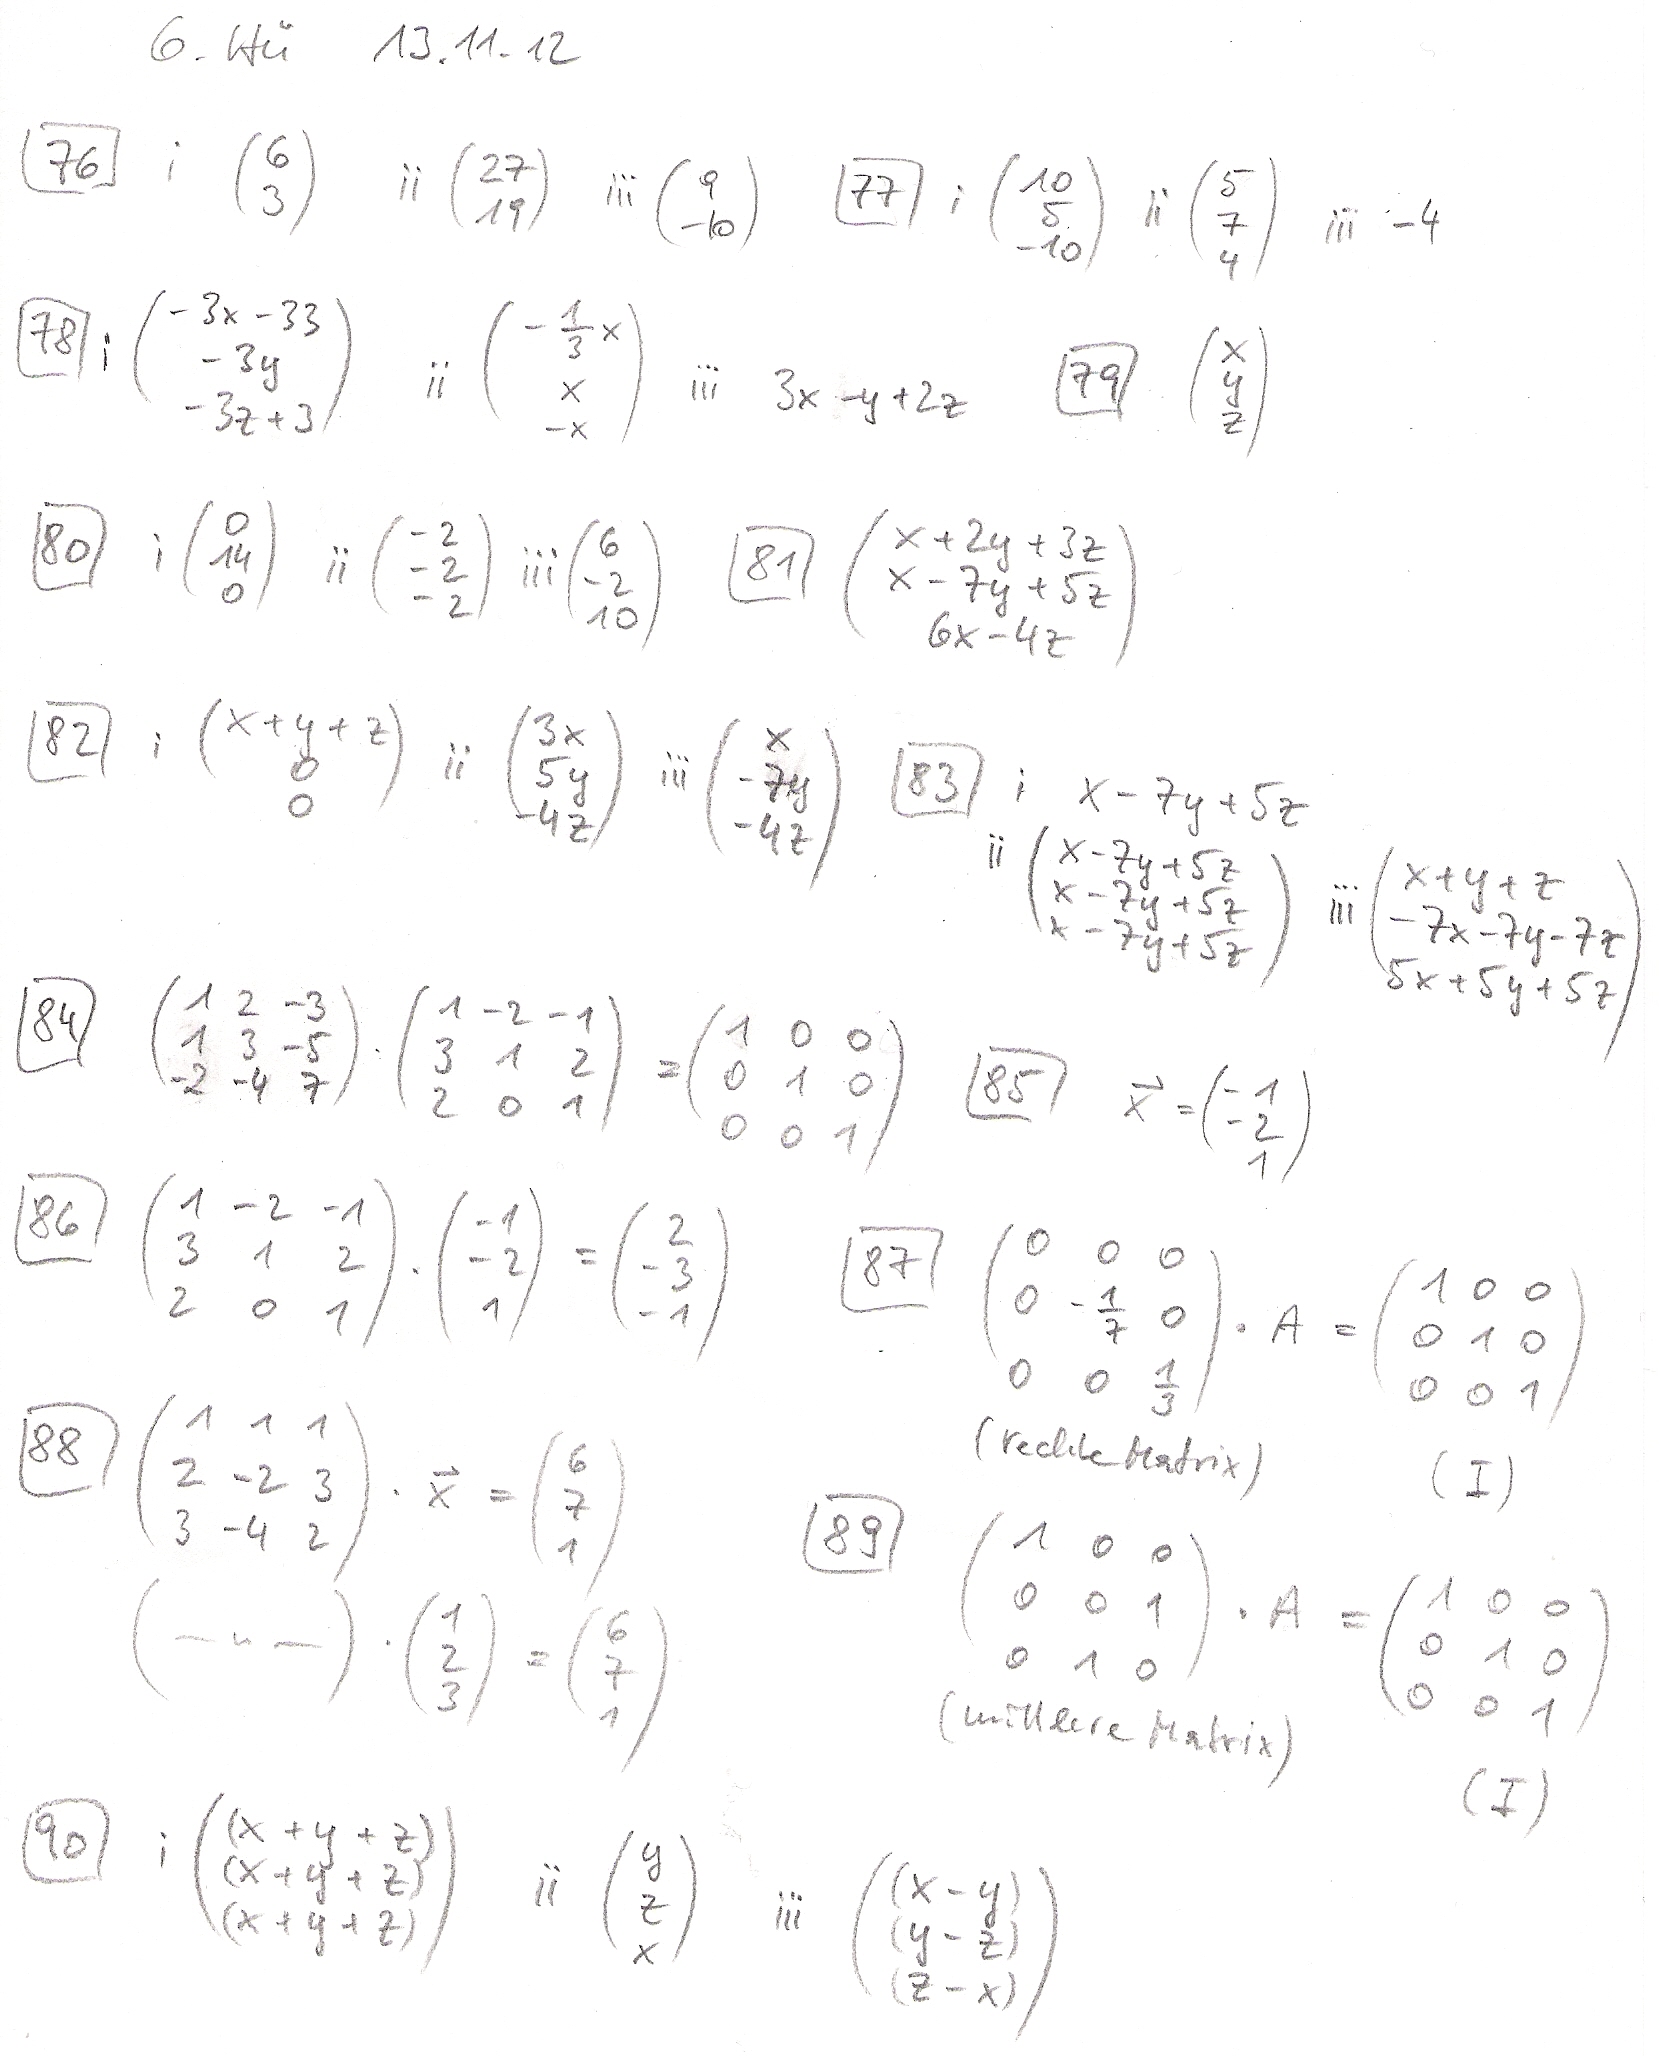 6. HÜ 13.11.12
76 i (6 3) ii (27 19) iii (9 -10) 77 i (10 5 -10) ii (5 7 4) iii -4
78 i (-3x-33 -3y -3z+3) ii (-1/3 x x -x) iii 3x-y+2z 79 (x y z)
80 i (0 14 0) ii (-2 -2 -2) iii (6 -2 10) 81 (x+2y+3z x-7y+5z 6x-4z)
82 i (x+y+z 0 0) ii (3x 5y -4z) iii (x -7y -4z) 83 i x-7y+5z
ii (x-7y+5z x-7y+5z x-7y+5z) iii (x+y+z -7x-7y-7z 5x+5y+5z)
84 (1 2 -3
1 3 -5
-2 -4 7) · (1 -2 -1
3 1 2
2 0 1) = (1 0 0
0 1 0
0 0 1) 85 x⃗ = (-1 -2 1)
86 (1 -2 -1
3 1 2
2 0 1) · (-1 -2 1) = (2 -3 -1)
87 (0 0 0
0 -1/7 0
0 0 1/3) · A = (1 0 0
0 1 0
0 0 1)
(rechte Matrix) (I)
88 (1 1 1
2 -2 3
3 -4 2) · x⃗ = (6 7 1)
(— " —) · (1 2 3) = (6 7 1)
89 (1 0 0
0 0 1
0 1 0) · A = (1 0 0
0 1 0
0 0 1)
(mittlere Matrix) (I)
90 i ((x+y+z) (x+y+z) (x+y+z)) ii (y z x) iii ((x-y) (y-z) (z-x))